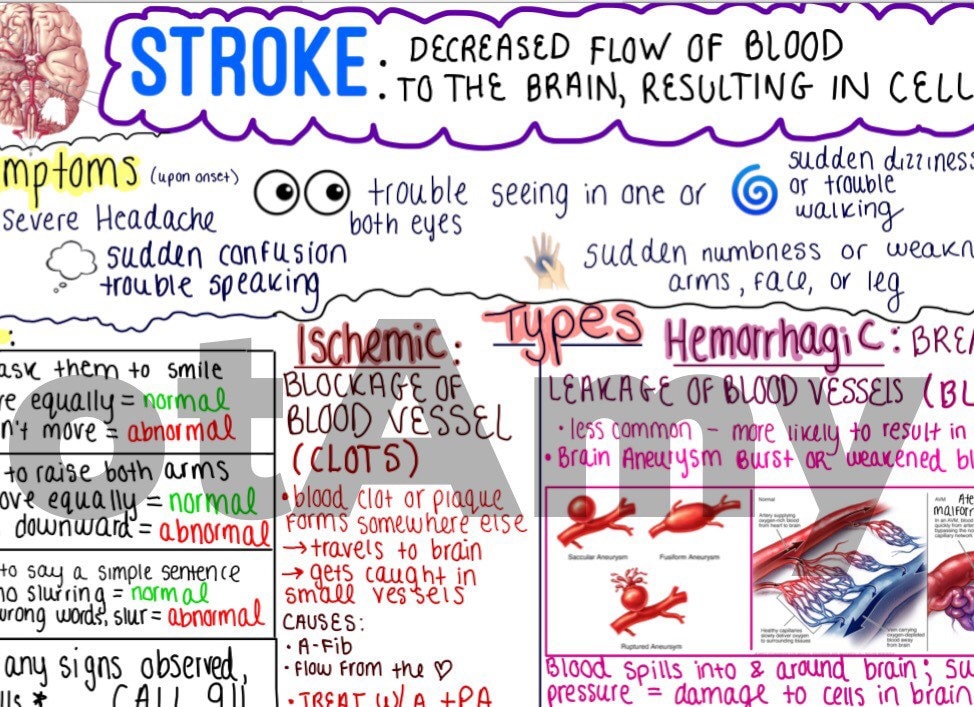 STROKE:
DECREASED FLOW OF BLOOD
TO THE BRAIN, RESULTING IN CELL
mptoms (upon onset)
Severe Headache
trouble seeing in one or
both eyes
sudden dizziness
or trouble
walking
sudden confusion
trouble speaking
sudden numbness or weakn
arms, face, or leg
Types
:
ask them to smile
re equally = normal
n't move = abnormal
to raise both arms
ove equally = normal
downward = abnormal
to say a simple sentence
no slurring = normal
wrong words, slur = abnormal
any signs observed,
lls * CALL 911
Ischemic:
BLOCKAGE OF
BLOOD VESSEL
(CLOTS)
• blood clot or plaque
forms somewhere else
→ travels to brain
→ gets caught in
small vessels
CAUSES:
• A-Fib
• Flow from the ♡
• TREAT W/ A tPA
Hemorrhagic: BREA
LEAKAGE OF BLOOD VESSELS (BL
• less common – more likely to result in
• Brain Aneurysm Burst or weakened bl
Saccular Aneurysm
Fusiform Aneurysm
Ruptured Aneurysm
Normal
Artery supplying
oxygen-rich blood
from heart to brain
Healthy capillaries
slowly deliver oxygen
to surrounding tissues
Vein carrying
oxygen-depleted
blood away
from brain
AVM
In an AVM, blood
quickly from arter
bypassing the no
capillary network
malfor
Blood spills into & around brain; su
pressure = damage to cells in brain
otAmy